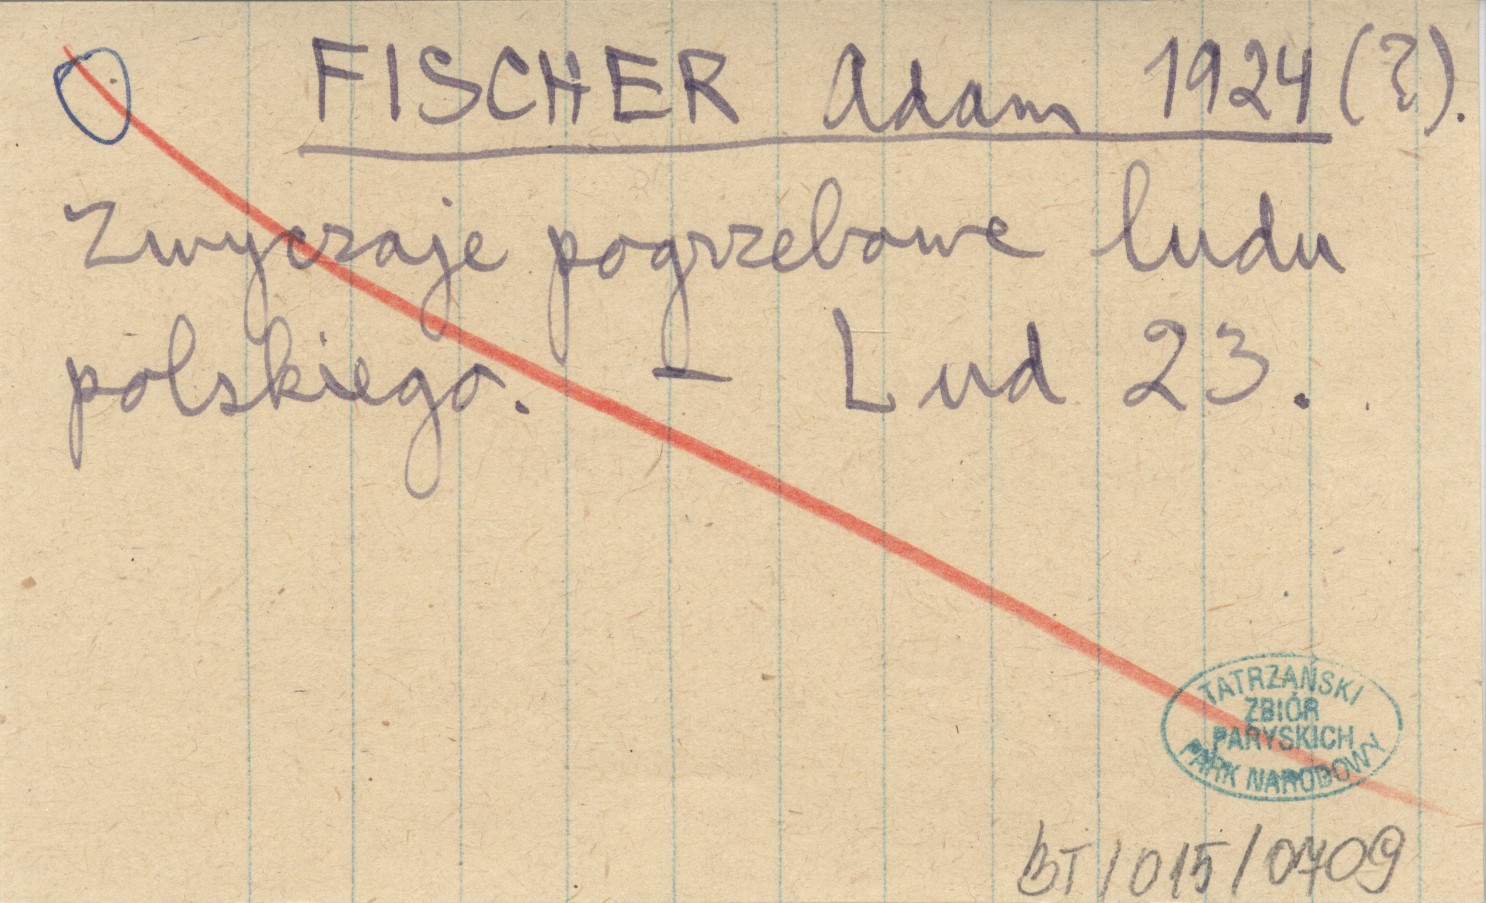 FISCHER Adam 1924 (?).
Zwyczaje pogrzebowe ludu
polskiego. – Lud 23.
TATRZAŃSKI
ZBIÓR
PARYSKICH
PARK NARODOWY
BT/015/0709